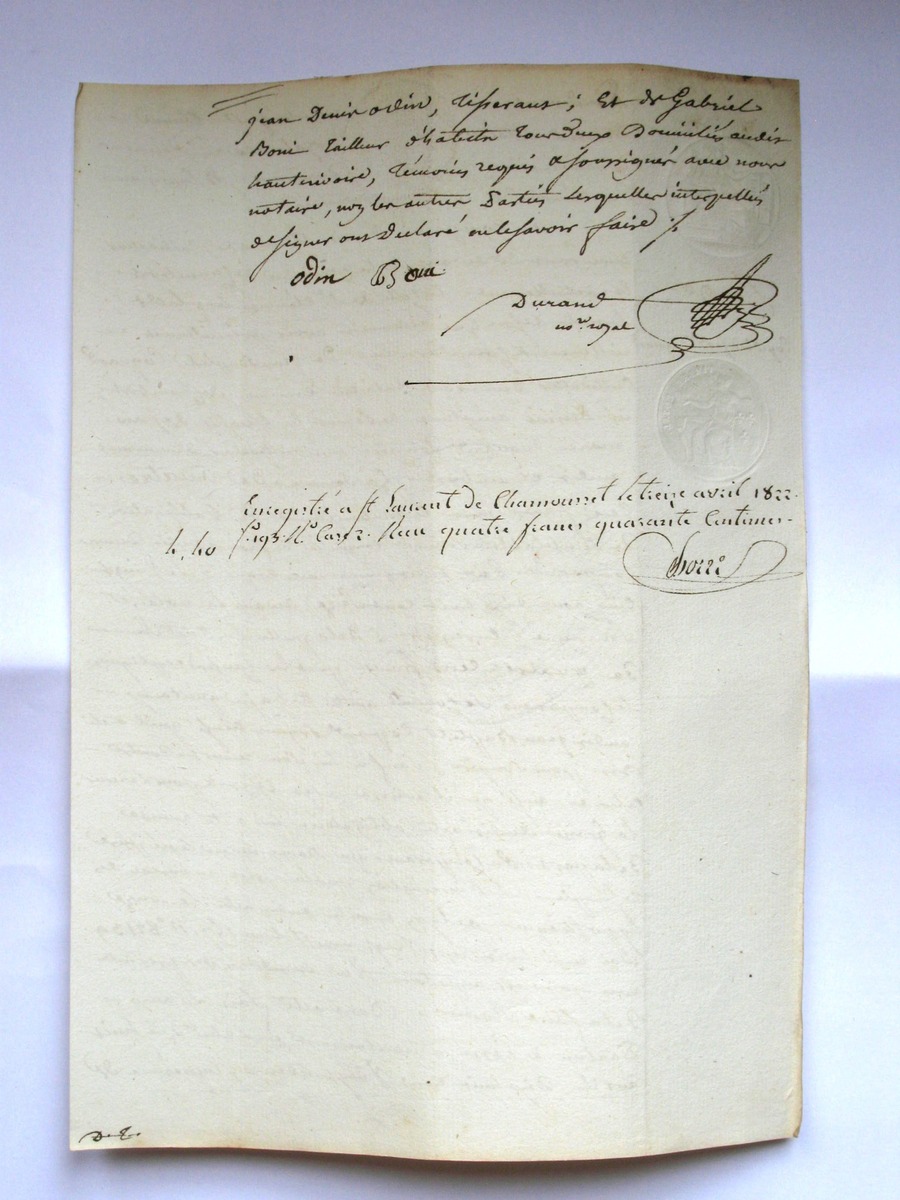 jean Denis odin, tisserant; Et de Gabriel
Boni tailleur d'habits tous deux Domiciliés audit
hauterivoire, témoins requis & soussignés avec nous
notaire, non les autres Parties Lesquelles interpellés
de signer ont Déclaré ne le savoir faire ./.
odin Boni
Durand
nore royal
Enregistré a St Laurent de Chamousset le treize avril 1822.
fo 193. Ro Case 2. Reçu quatre francs quarante Centimes.
4,40
D. L.